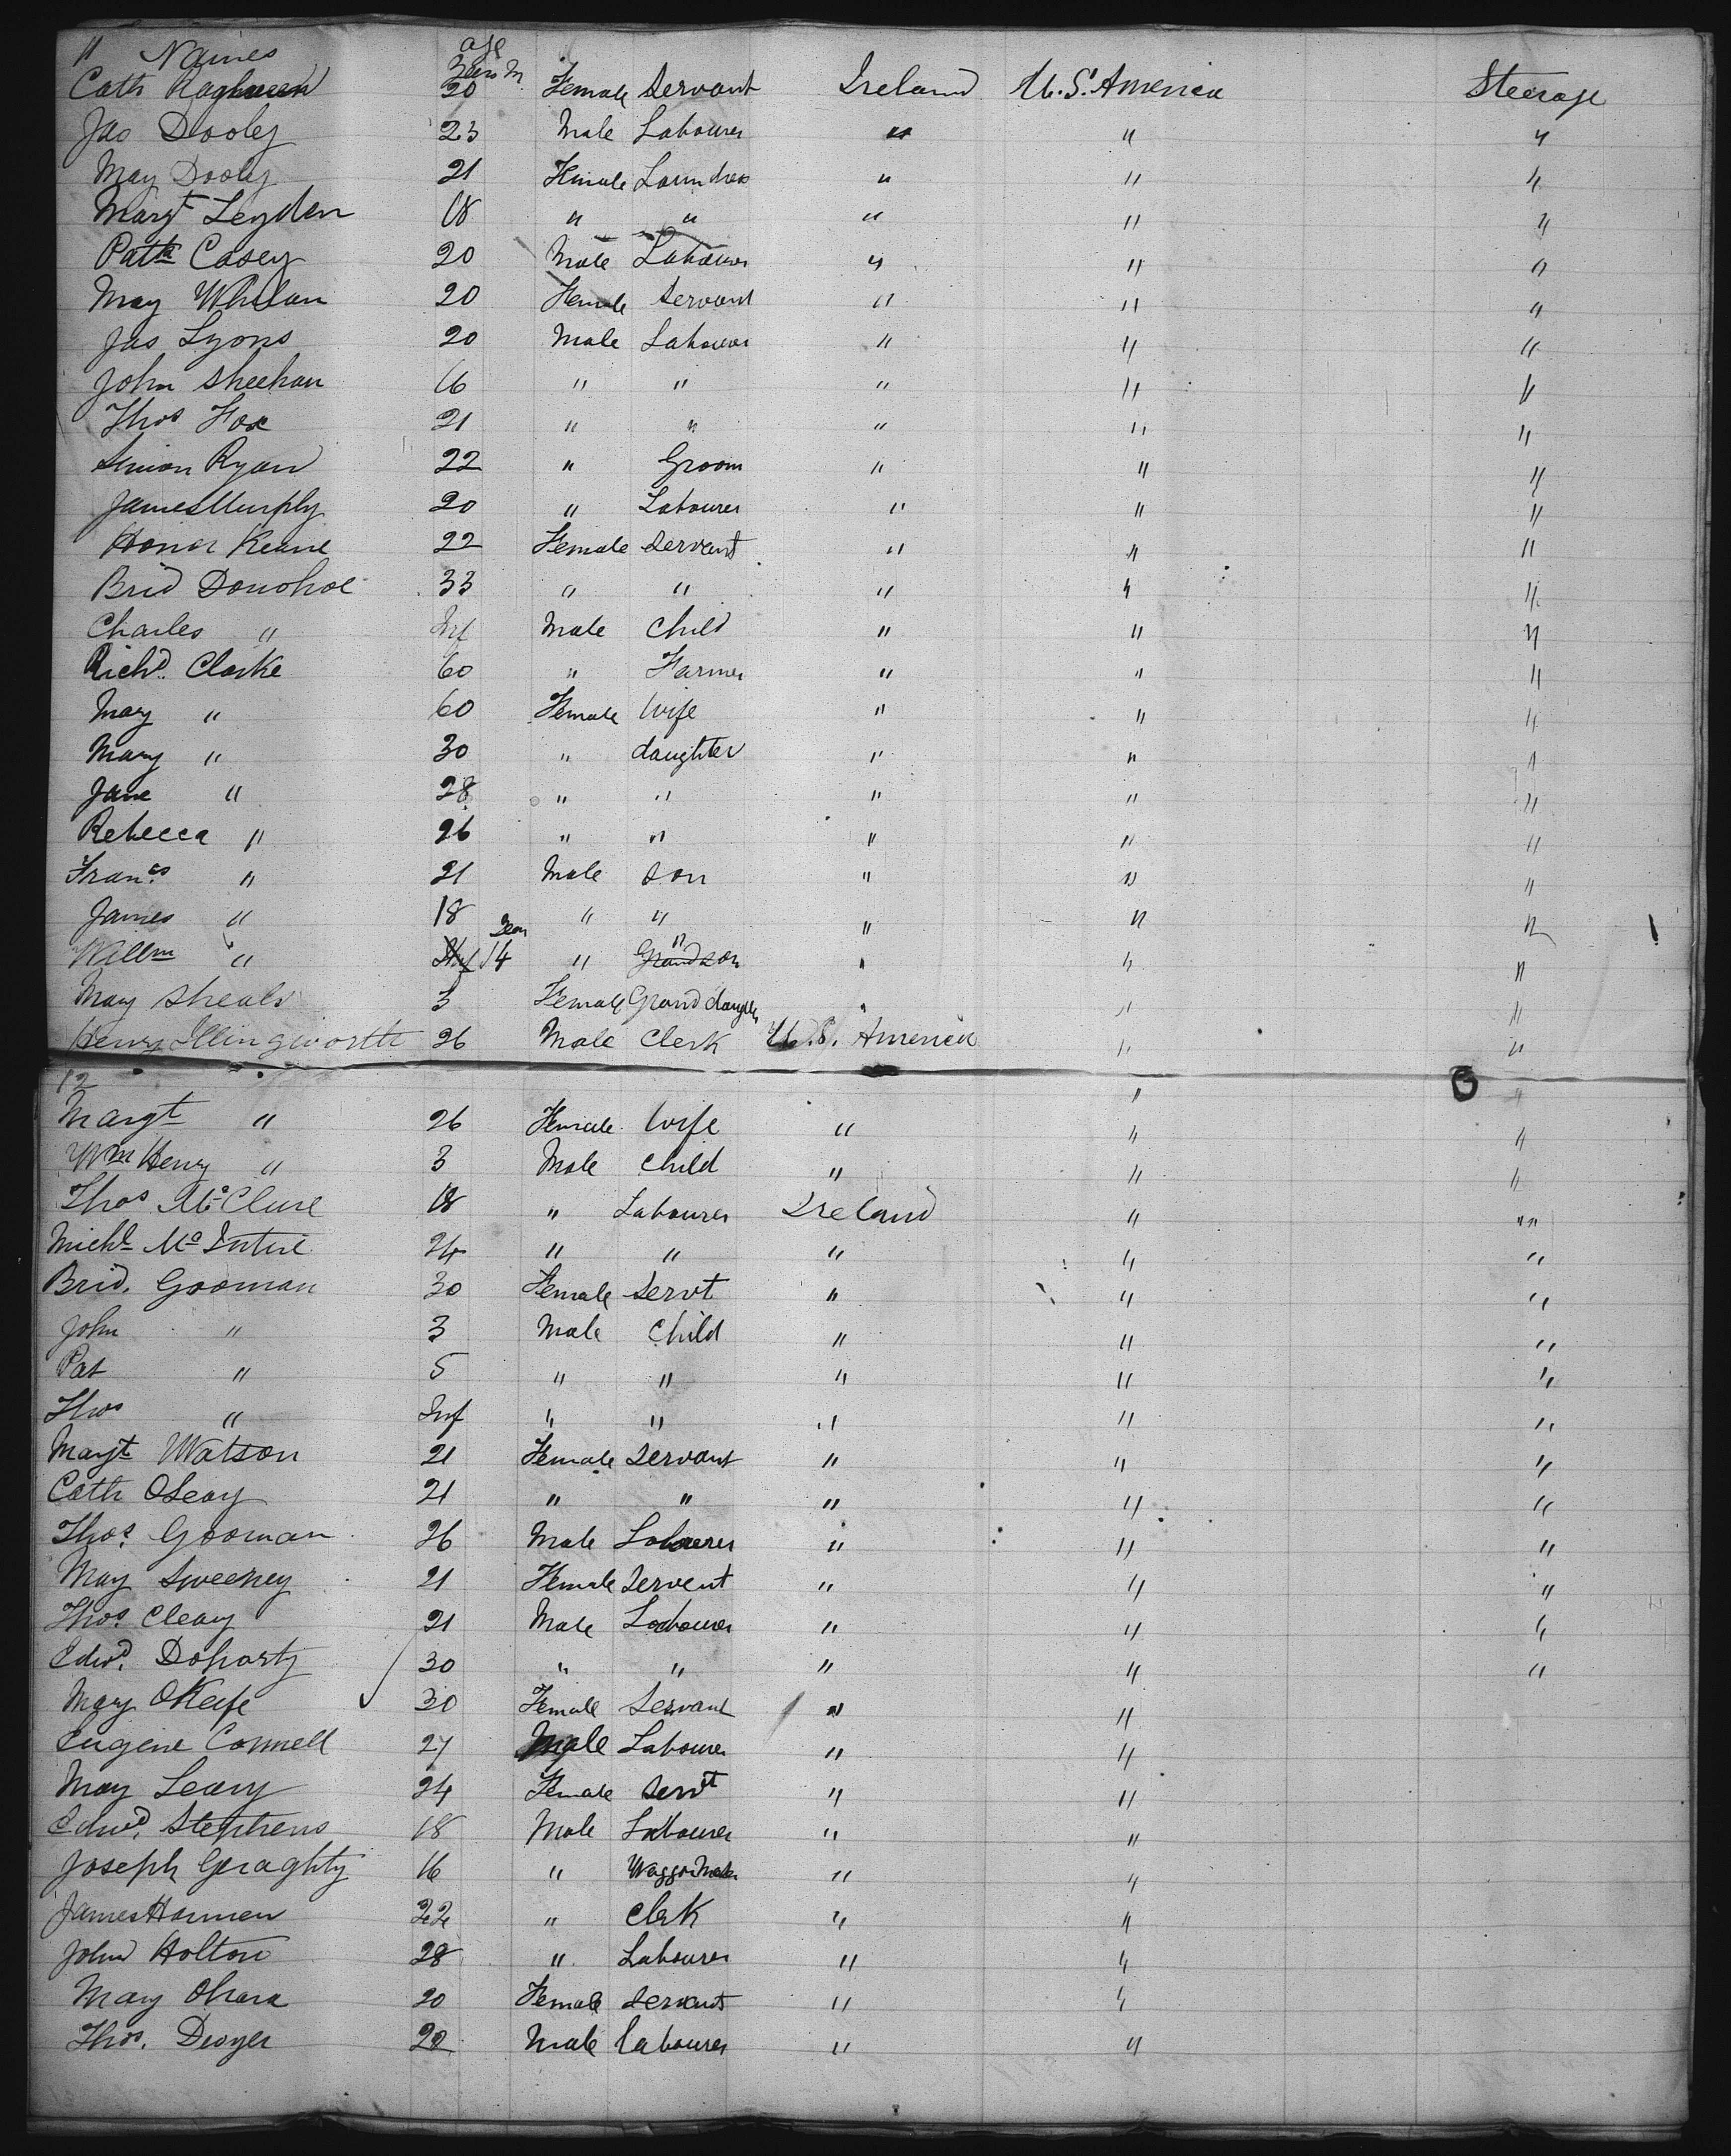 11 Names age
Years M
Cath 20 Female Servant Ireland U.S. America Steerage
Jas Dooley 23 Male Labourer " " "
May Dooley 21 Female Laundress " " "
Margt Leyden 18 " " " " "
Patk Casey 20 Male Labourer " " "
May Whelan 20 Female Servant " " "
Jas Lyons 20 Male Labourer " " "
John Sheehan 16 " " " " "
Thos Fox 21 " " " " "
Simon Ryan 22 " Groom " " "
James Murphy 20 " Labourer " " "
Honor Keane 22 Female Servant " " "
Brid Donohoe 33 " " " " "
Charles " Inf Male Child " " "
Richd. Clarke 60 " Farmer " " "
Mary " 60 Female Wife " " "
Mary " 30 " daughter " " "
Jane " 28 " " " " "
Rebecca " 26 " " " " "
Frans. " 21 Male Son " " "
James " 18 " " " " "
Willm " Inf 14 " Grandson " " " "
May Sheals 3 Female Grand daughter " " "
Henry Illingworth 26 Male Clerk U.S. America " "
12 " "
Margt " 26 Female Wife " " "
Wm Henry " 3 Male Child " " "
Thos McClure 18 " Labourer Ireland " "
Michl McIntire 24 " " " " "
Brid. Gooman 30 Female Servt " " "
John " 3 Male Child " " "
Pat " 5 " " " " "
Thos " Inf " " " " "
Margt Watson 21 Female Servant " " "
Cath OLeary 21 " " " " "
Thos. Gooman 26 Male Labourer " " "
May Sweeney 21 Female Servent " " "
Thos. Cleary 21 Male Labourer " " "
Edwd. Doharty 30 " " " " "
Mary OKeefe 30 Female Servant " "
Eugene Connell 27 Male Labourer " "
May Leary 24 Female Servt " "
Edwd. Stephens 18 Male Labourer " "
Joseph Geraghty 16 " Waggon Maker " "
James Hannen 22 " Clerk " "
John Holton 28 " Labourer " "
Mary Ohara 20 Female Servant " "
Thos. Dwyer 20 Male labourer " "